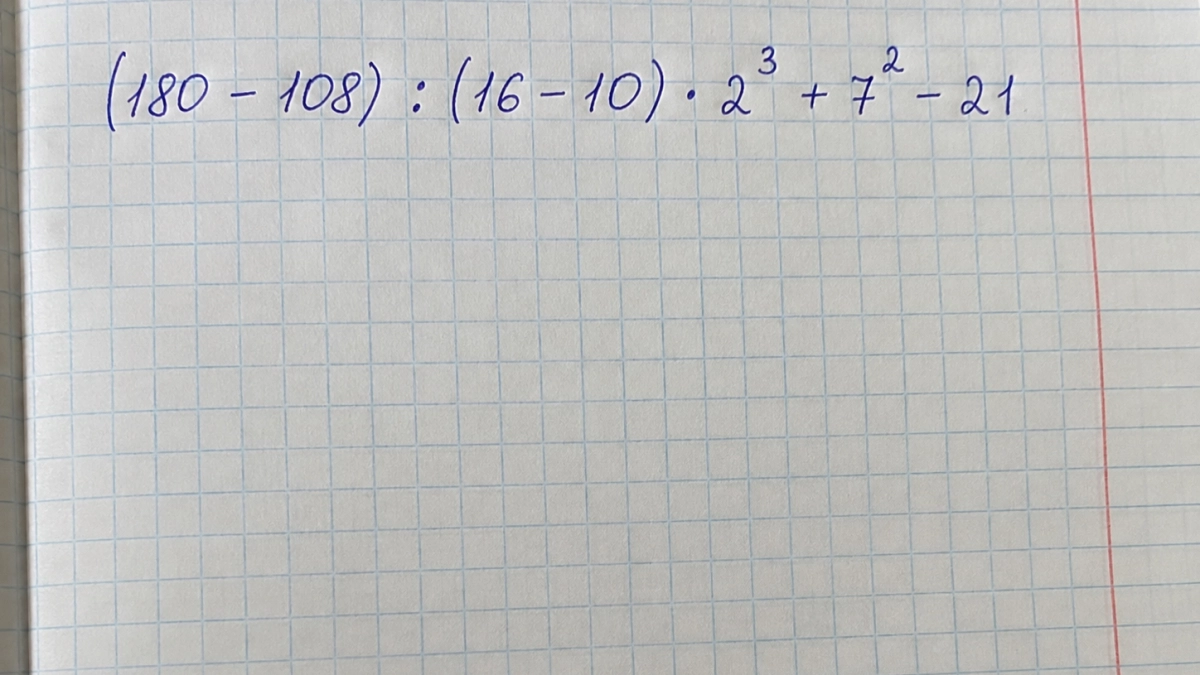 (180 - 108) : (16 - 10) · 2³ + 7² - 21